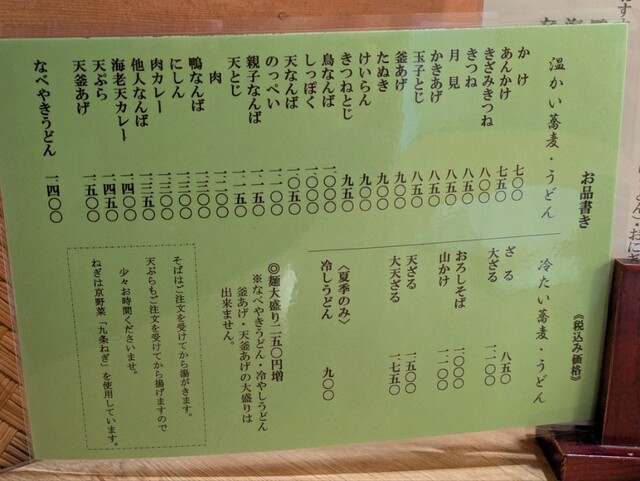 お品書き
《税込み価格》
温かい蕎麦・うどん
かけ 七〇〇
あんかけ 七五〇
きざみきつね 八〇〇
きつね 八五〇
月見 八五〇
かきあげ 八五〇
玉子とじ 八五〇
釜あげ 九〇〇
たぬき 九〇〇
けいらん 九〇〇
きつねとじ 九五〇
鳥なんば 一〇〇〇
しっぽく 一〇〇〇
天なんば 一〇五〇
のっぺい 一一〇〇
親子なんば 一一五〇
天とじ 一一五〇
肉 一二〇〇
鴨なんば 一三〇〇
にしん 一三〇〇
肉カレー 一三〇〇
他人なんば 一三五〇
海老天カレー 一四〇〇
天ぷら 一四五〇
天釜あげ 一五〇〇
なべやきうどん 一四〇〇
冷たい蕎麦・うどん
ざる 八五〇
大ざる 一一〇〇
おろしそば 一〇〇〇
山かけ 一一〇〇
天ざる 一五〇〇
大天ざる 一七五〇
〈夏季のみ〉
冷しうどん 九〇〇
◎麺大盛り二五〇円増
※なべやきうどん・冷やしうどん
釜あげ・天釜あげの大盛りは
出来ません。
そばはご注文を受けてから湯がきます。
天ぷらもご注文を受けてから揚げますので
少々お時間くださいませ。
ねぎは京野菜「九条ねぎ」を使用しています。